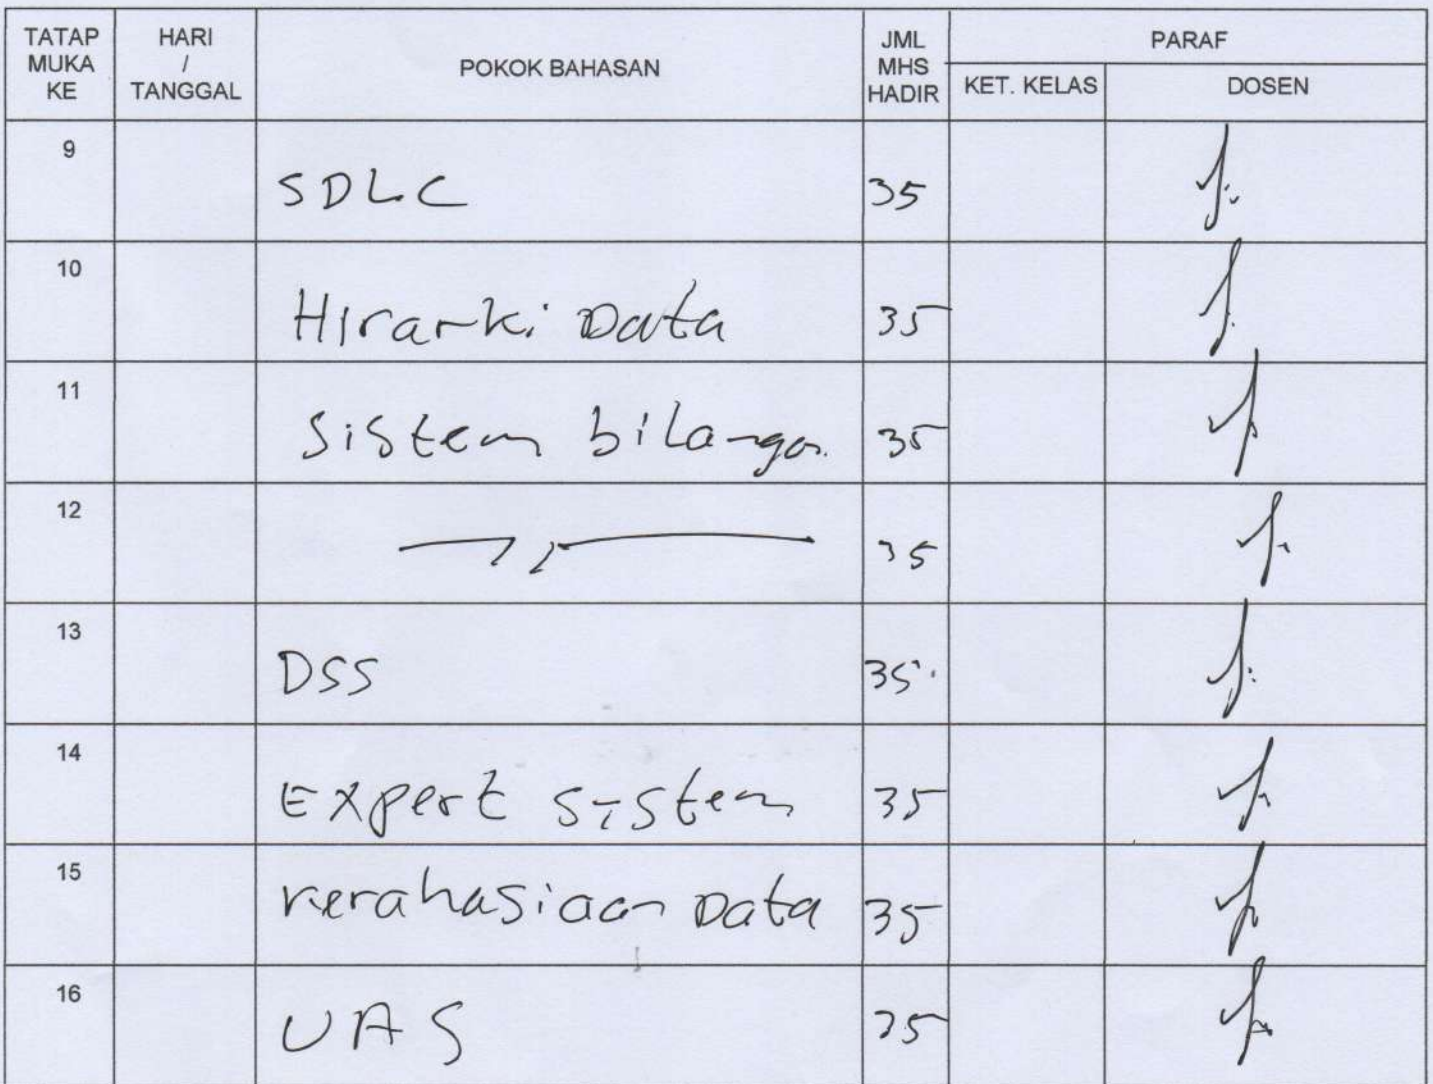 TATAP MUKA KE HARI / TANGGAL POKOK BAHASAN JML MHS HADIR PARAF
KET. KELAS DOSEN
9 SDLC 35
10 Hirarki Data 35
11 Sistem bilangan 35
12 — ,, — 35
13 DSS 35
14 Expert System 35
15 Kerahasiaan Data 35
16 UAS 35